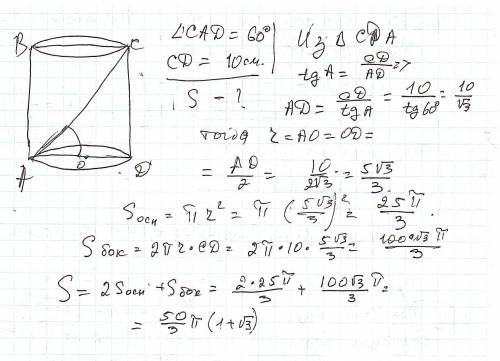 B C
A O D
∠CAD = 60°
CD = 10см.
S - ?
Из Δ CDA
tg A = CD/AD =>
AD = CD/tg A = 10/tg 60° = 10/√3
тогда r = AO = OD =
= AD/2 = 10/2√3 = 5√3/3.
Sосн = π r² = π (5√3/3)² = 25π/3.
Sбок = 2πr·CD = 2π·10·5√3/3 = 100√3π/3
S = 2Sосн + Sбок = 2·25π/3 + 100√3/3 π =
= 50/3 π (1+√3)